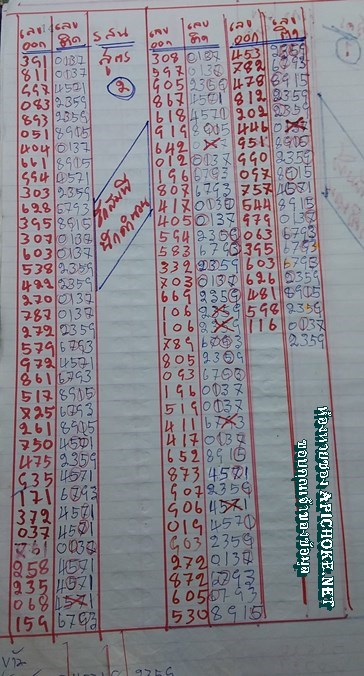 เลข เลข รสน เลข เลข เลข เลข
ออก ติด สูตร ออก ติด ออก ติด
391 0137 308 0137 453 2359
811 0137 ② 597 0137 782 6793
997 4571 905 2359 478 8915
083 2359 867 4571 812 2359
893 2359 618 202 2359
051 8915 919 446
404 0137 642 951 8915
661 8915 012 0137 990 2359
994 4571 196 6793 097
303 2359 807 6793 757 4571
628 6793 417 0137 544 8915
395 8915 405 0137 979 0137
307 0137 594 2359 063 6793
603 0137 583 6793 395 6793
538 2359 332 2359 603
422 2359 703 0137 626 2359
270 0137 669 2359 481 8915
787 0137 106 598 2359
272 2359 106 116 0137
579 6793 789 6793 2359
972 4571 805 2359
861 6793 093 6793
517 8915 196 0137
725 6793 519 0137
261 8915 411
750 4571 417 0137
475 2359 652 8915
935 4571 873 4571
171 6793 907 2359
372 4571 906 4571
037 4571 019 4571
761 903 2359
258 4571 272 0137
235 4571 872 6793
068 4571 605 6793
159 6793 530 8915
ห้องหวยของ APICHOKE.NET
ขอบคุณเจ้าของข้อมูล